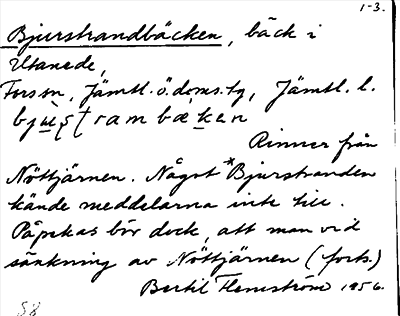 1-3.
Bjurstrandbäcken, bäck i
Utanede,
Forssn, Jämtl. ö. doms.tg, Jämtl. l.
Rinner från
Nöttjärnen. Något *Bjurstranden
kände meddelarna inte till.
Påpekas bör dock, att man vid
sänkning av Nöttjärnen (forts.)
Bertil Flemström 1956.
58